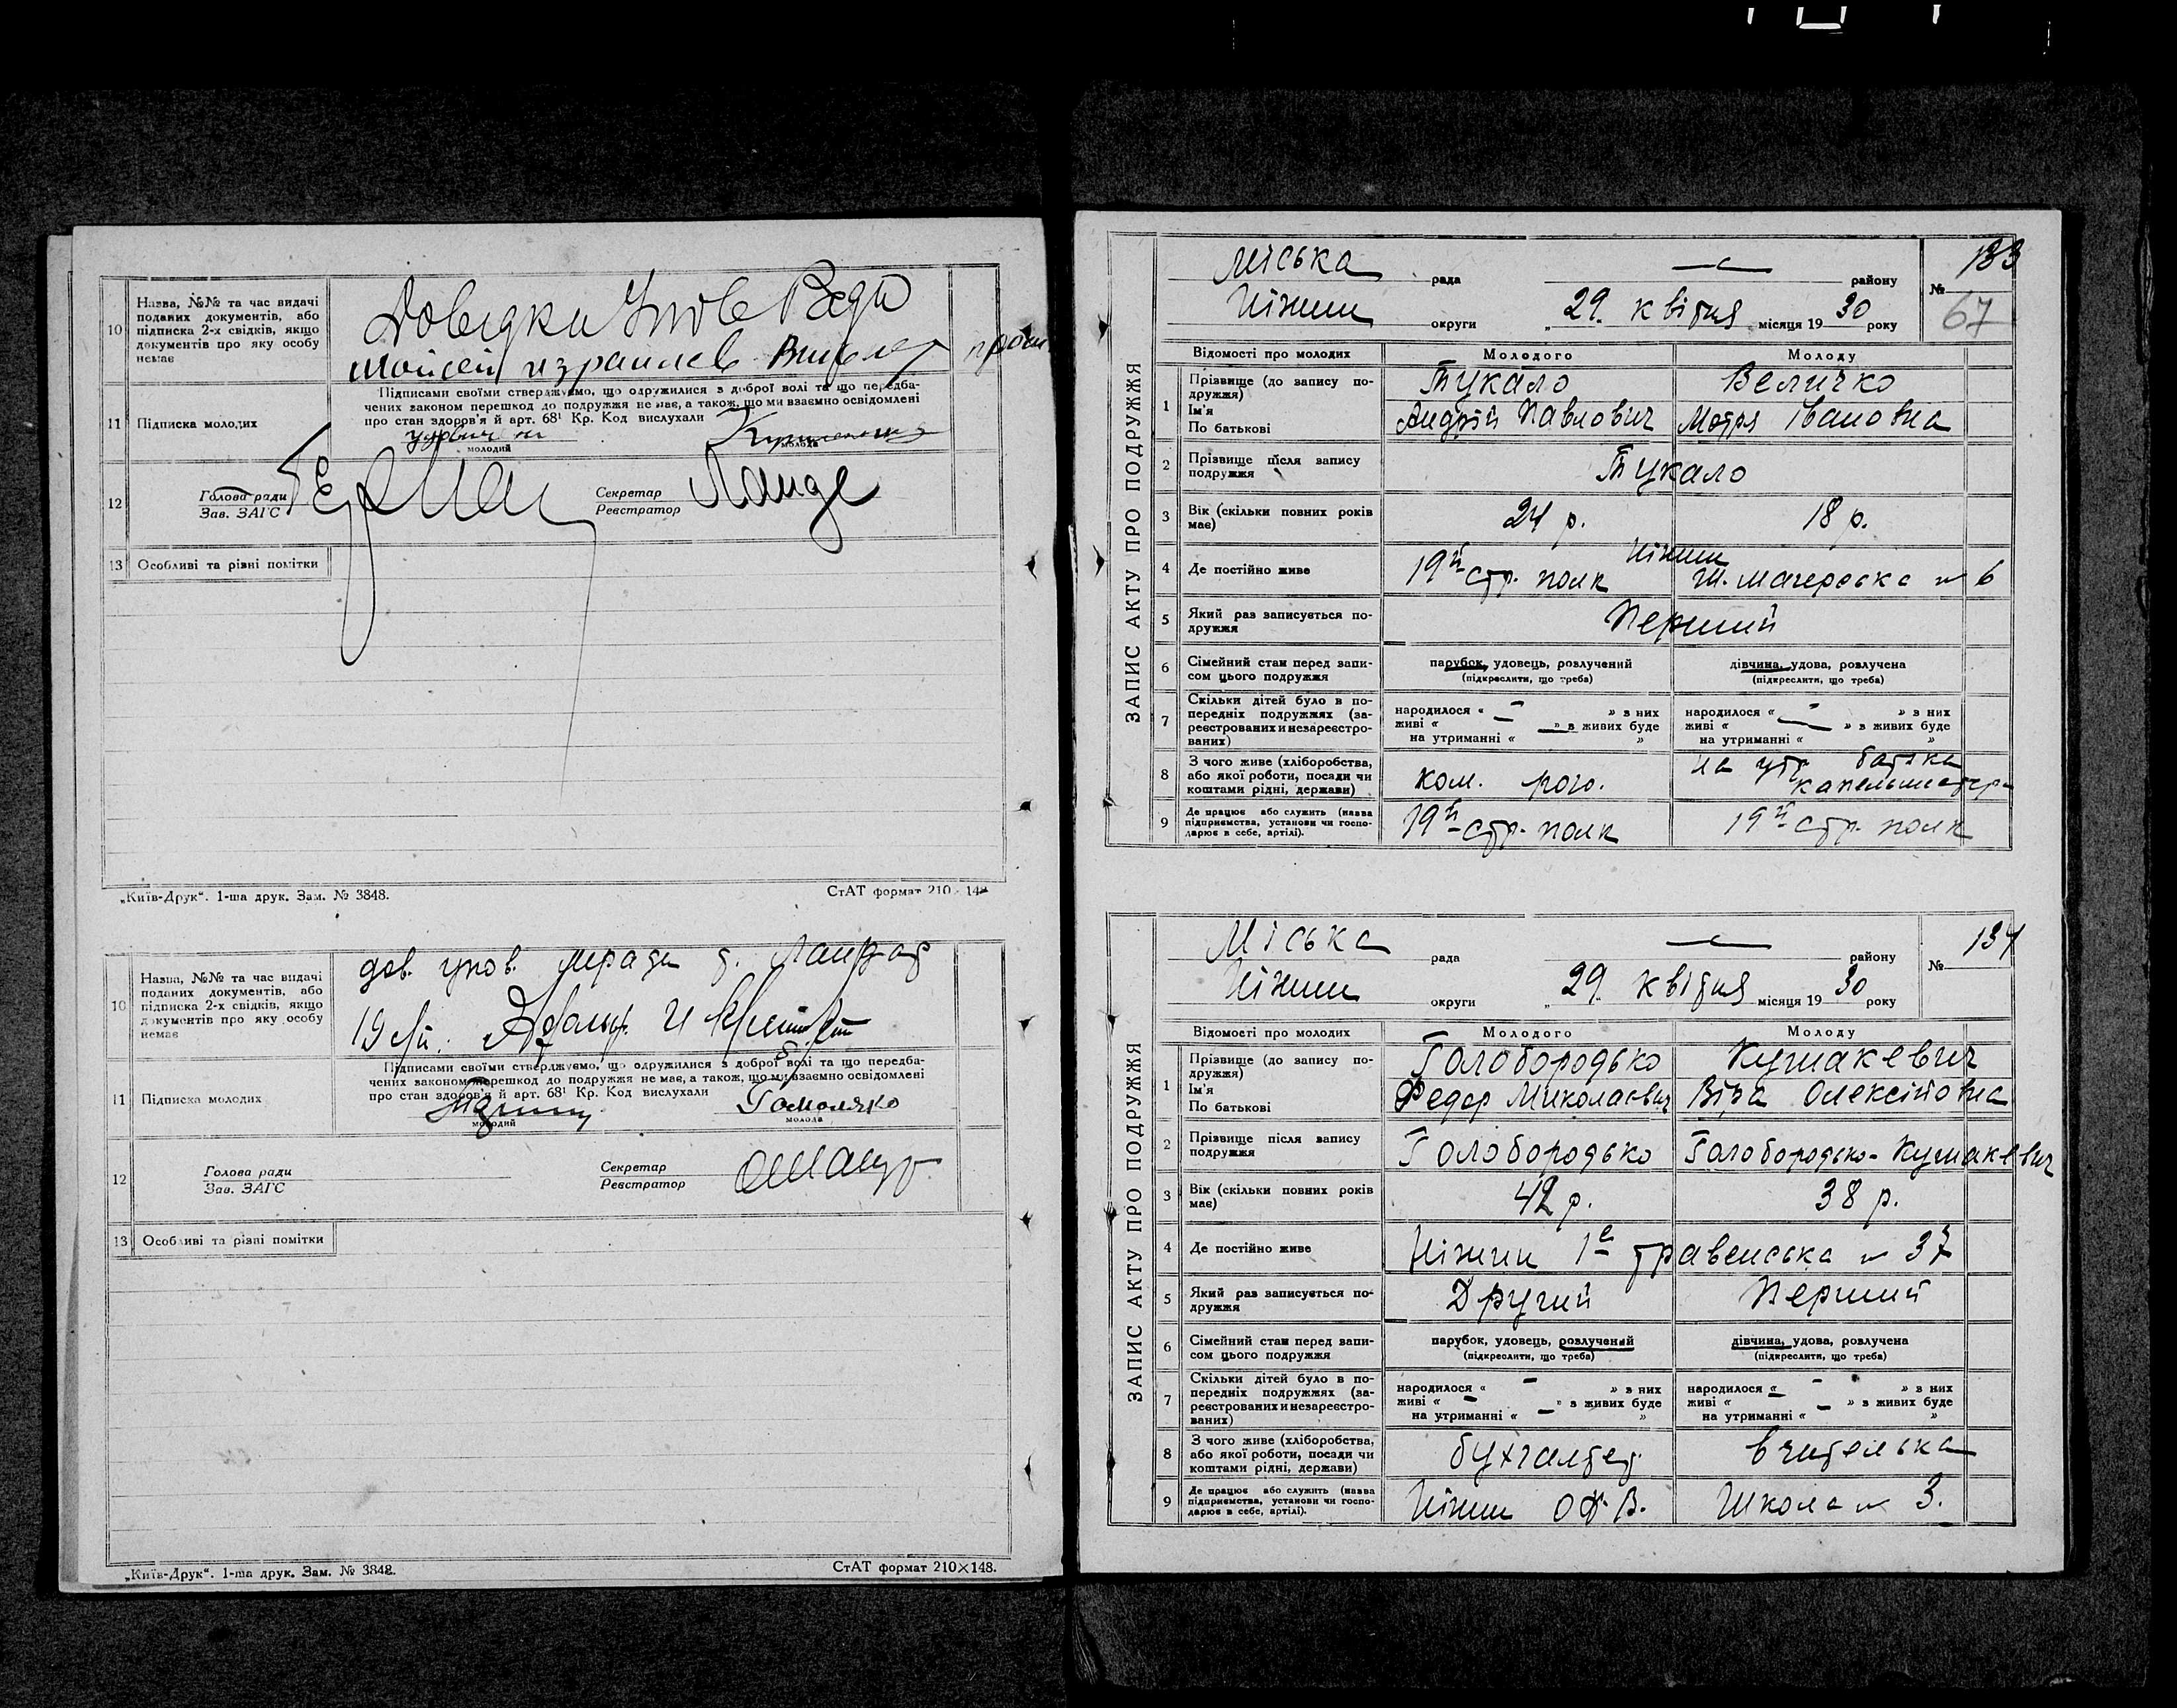 10
Назва, №№ та час видачі
поданих документів, або
підписка 2-х свідків, якщо
документів про яку особу
немає
Довідки Упов Ради
Мойсей Израилев
11 Підписка молодих
Підписами своїми стверджуємо, що одружилися з доброї волі та що передба-
чених законом перешкод до подружжя не має, а також, що ми взаємно освідомлені
про стан здоров'я й арт. 68¹ Кр. Код вислухали
молодий
молода
12
Голова ради
Зав. ЗАГС
Секретар
Реєстратор
13 Особливі та різні помітки
„Київ-Друк“. 1-ша друк. Зам. № 3848.
СтАТ формат 210×148
10
Назва, №№ та час видачі
поданих документів, або
підписка 2-х свідків, якщо
документів про яку особу
немає
дов. упов.
11 Підписка молодих
Підписами своїми стверджуємо, що одружилися з доброї волі та що передба-
чених законом перешкод до подружжя не має, а також, що ми взаємно освідомлені
про стан здоров'я й арт. 68¹ Кр. Код вислухали
Гомоляко
молодий
молода
12
Голова ради
Зав. ЗАГС
Секретар
Реєстратор
13 Особливі та різні помітки
„Київ-Друк“. 1-ша друк. Зам. № 3848.
СтАТ формат 210×148.
ЗАПИС АКТУ ПРО ПОДРУЖЖЯ
Міська рада — району № 133
Ніжин округи „29. квітня місяця 1930 року 67
Відомості про молодих Молодого Молоду
1 Прізвище (до запису по-
дружжя) Тукало Величко
Ім'я
По батькові Андрій Павлович Мотря Івановна
2 Прізвище після запису
подружжя Тукало
3 Вік (скільки повних років
має) 24 р. 18 р.
4 Де постійно живе 19й стр. полк Ніжин
Ш. Магерська № 6
5 Який раз записується по-
дружжя Перший
6 Сімейний стан перед запи-
сом цього подружжя
парубок, удовець, розлучений
(підкреслити, що треба)
дівчина, удова, розлучена
(підкреслити, що треба)
7 Скільки дітей було в по-
передніх подружжях (за-
реєстрованих и незареєстро-
ваних)
народилося « — » з них
живі « — » з живих буде
на утриманні « — »
народилося « — » з них
живі « — » з живих буде
на утриманні « »
8 З чого живе (хліборобства,
або якої роботи, посади чи
коштами рідні, держави)
ком. рого.
на утр батька
капельмейстера
9 Де працює або служить (назва
підприємства, установи чи госпо-
дарює в себе, артілі).
19й стр. полк 19й стр. полк
ЗАПИС АКТУ ПРО ПОДРУЖЖЯ
Міська рада — району № 134
Ніжин округи „29. квітня місяця 1930 року
Відомості про молодих Молодого Молоду
1 Прізвище (до запису по-
дружжя) Голобородько Кушакевич
Ім'я
По батькові Федор Миколаєвич Віра Олексійовна
2 Прізвище після запису
подружжя Голобородько Голобородько-Кушакевич
3 Вік (скільки повних років
має) 42 р. 38 р.
4 Де постійно живе Ніжин 1е травенська № 37
5 Який раз записується по-
дружжя Другий Перший
6 Сімейний стан перед запи-
сом цього подружжя
парубок, удовець, розлучений
(підкреслити, що треба)
дівчина, удова, розлучена
(підкреслити, що треба)
7 Скільки дітей було в по-
передніх подружжях (за-
реєстрованих и незареєстро-
ваних)
народилося « — » з них
живі « — » з живих буде
на утриманні « — »
народилося « — » з них
живі « — » з живих буде
на утриманні « »
8 З чого живе (хліборобства,
або якої роботи, посади чи
коштами рідні, держави)
бухгалтер вчителька
9 Де працює або служить (назва
підприємства, установи чи госпо-
дарює в себе, артілі).
Ніжин О.Ф.В. Школа № 3.